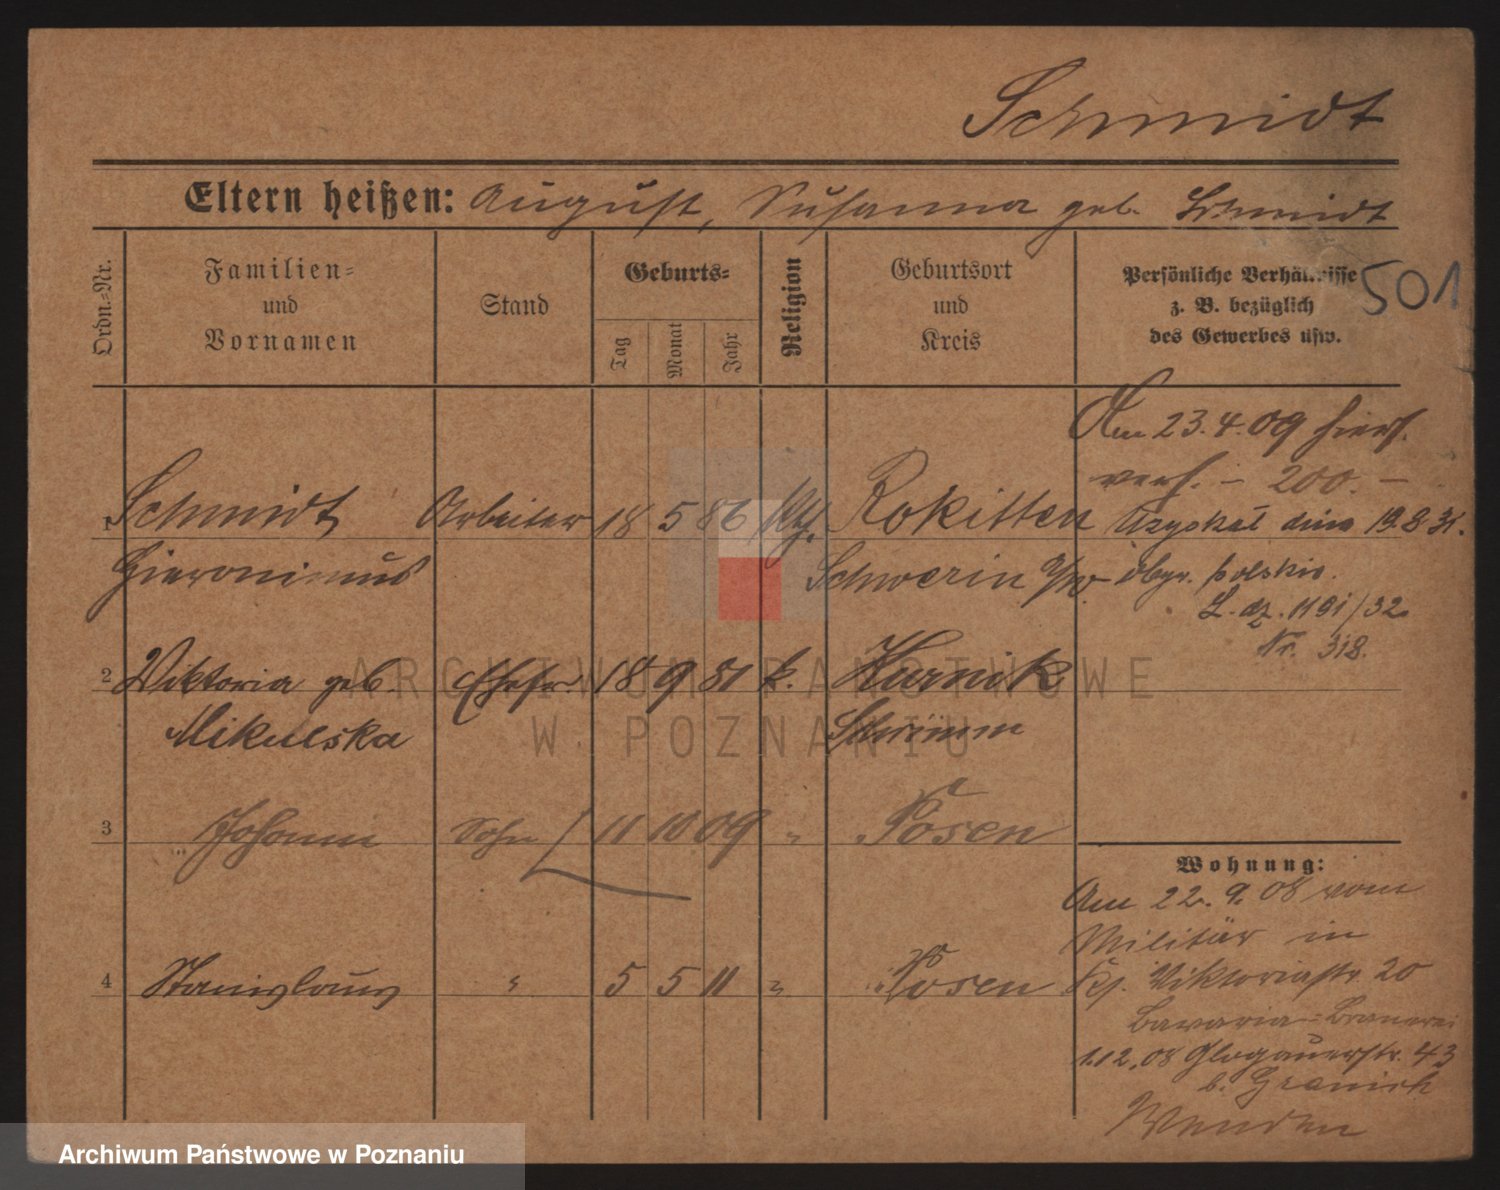 Schmidt
Eltern heißen: August, Susanna geb. Schmidt
Ordn.-Nr.
Familien-
und
Vornamen
Stand
Geburts-
Tag
Monat
Jahr
Religion
Geburtsort
und
Kreis
Persönliche Verhältnisse
z. B. bezüglich
des Gewerbes usw.
501
Am 23.4.09 hier
verh. - 200. -
1 Schmidt Arbeiter 18 5 86 Rokitten
Uzyskał dnia 19.8.31.
Hieronimus Schwerin a/W
obyw. polskie.
L. dz. 1191/32
Nr. 318.
2 Viktoria geb. Ehefr. 18 9 81 k. Kurnik
Mikulska Schrimm
3 Johann Sohn 11 10 09 " Posen
4 Stanislaus " 5 5 11 " Posen
Wohnung:
Am 22.9.08 vom
Militär in
Viktoriastr. 20
Bavaria-Brauerei
1.12.08 Glogauerstr. 43
b.
Wenden
ARCHIWUM PAŃSTWOWE
W POZNANIU
Archiwum Państwowe w Poznaniu